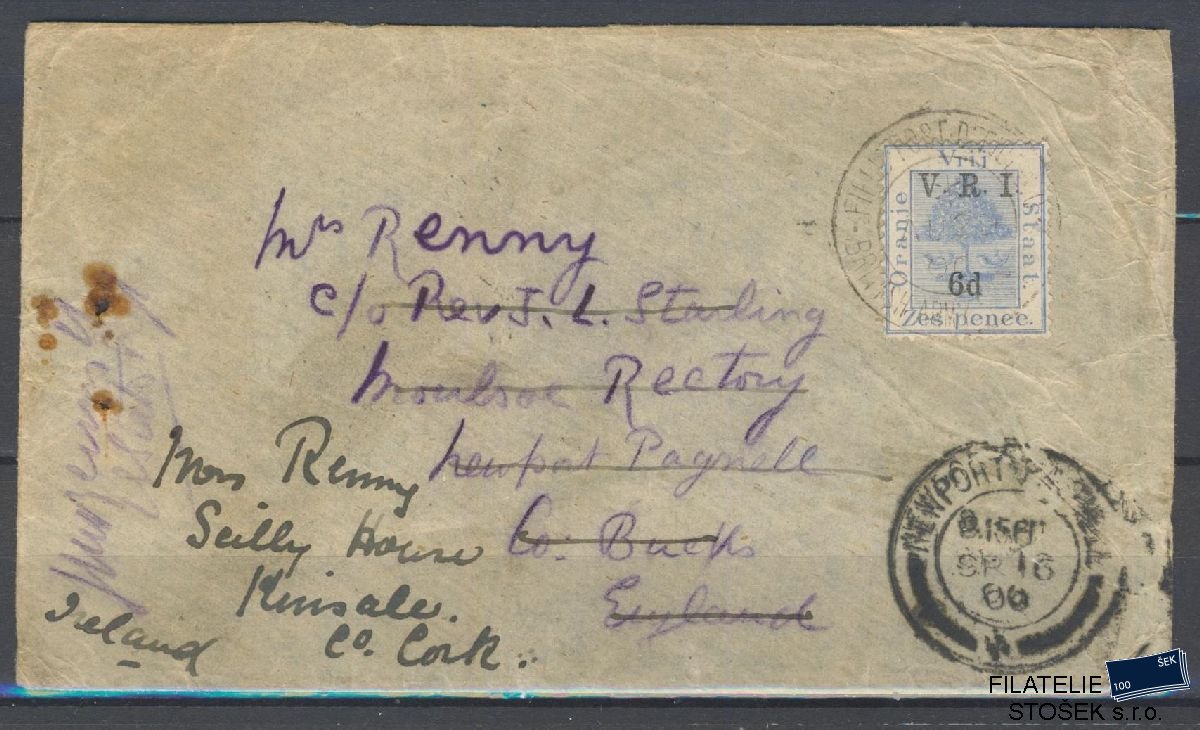 Mrs Renny
c/o Rev J. L. Starling
Moulsoe Rectory
Newport Pagnell
Co: Bucks
England
Mrs Renny
Scilly House
Kinsale.
Co. Cork.
Ireland
Vrij
V. R. I.
Oranje
Staat.
6d
Zes pence.
NEWPORT
8.15
SP 16
00
ŠEK
100
FILATELIE
STOŠEK s.r.o.